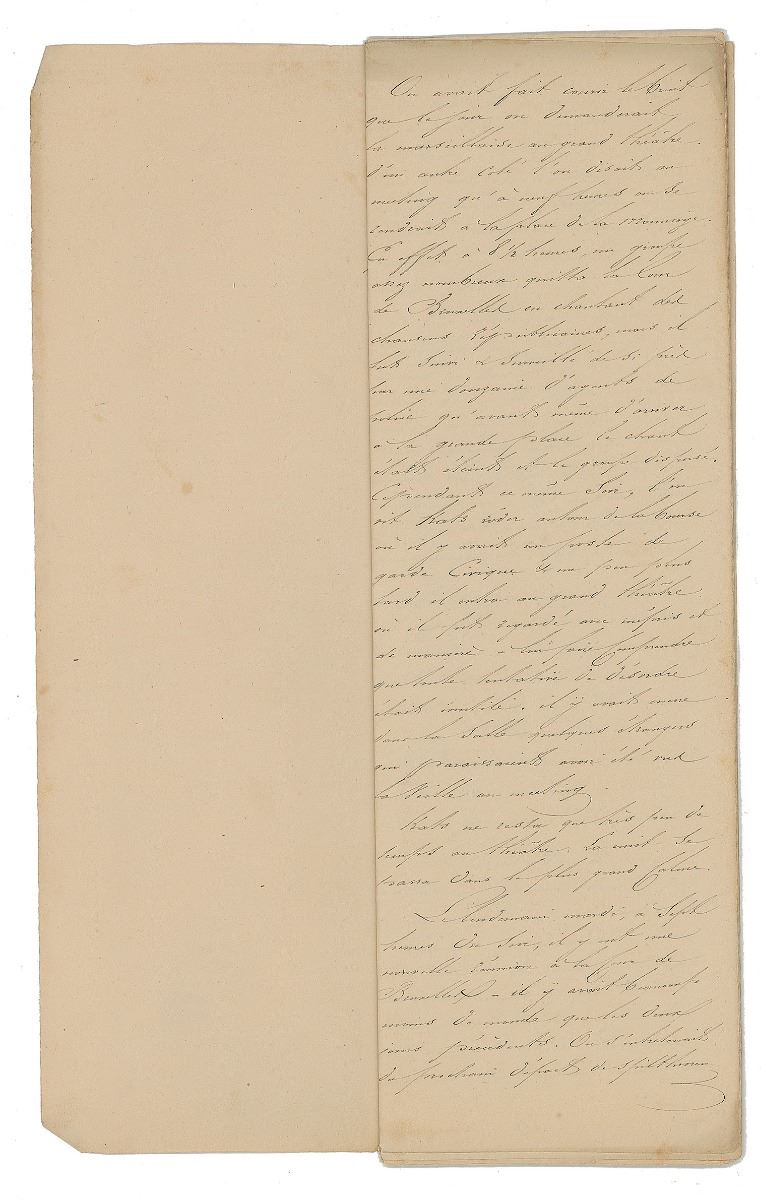 On avait fait courir le bruit
que le soir on demanderait
la marseillaise au grand théâtre.
D'un autre coté l'on disait au
meeting qu'à neuf heures on se
rendrait à la place de la Monnaie.
En effet à 8 1/2 heures, un groupe
assez nombreux quitta la Cour
de Bruxelles en chantant des
chansons républicaines, mais il
fut suivi & surveillé de si près
par une douzaine d'agents de
police qu'avant même d'arriver
à la grande place le chant
était éteint et le groupe dispersé.
Cependant ce même soir, l'on
vit Kats rôder autour de la bourse
où il y avait un poste de
garde Civique & un peu plus
tard il entra au grand théâtre
où il fut regardé avec mépris et
de manière à lui faire comprendre
que toute tentative de désordre
était inutile. il y avait même
dans la salle quelques étrangers
qui paraissaient avoir été vus
la veille au meeting.
Kats ne resta que très peu de
temps au théâtre. La nuit se
passa dans le plus grand Calme.
Le lendemain mardi, à Sept
heures du soir, il y eut une
nouvelle réunion à la Cour de
Bruxelles - il y avait beaucoup
moins de monde que les deux
jours précédents. On s'entretenait
du prochain départ de Spilthoorn